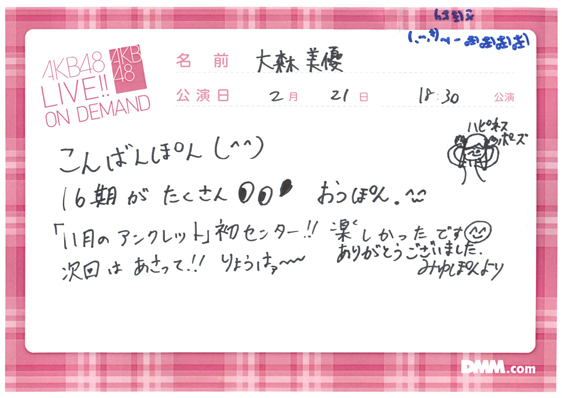 AKB48
LIVE!!
ON DEMAND
AKB
48
名前 大森美優
公演日 2月 21日 18:30 公演
ハピネス
ポーズ
こんばんぽん(^^)
16期がたくさん おっぽん.
「11月のアンクレット」初センター!! 楽しかったです
ありがとうございました.
次回は あさって!! りょうはァ〜
みゆぽんより
DMM.com